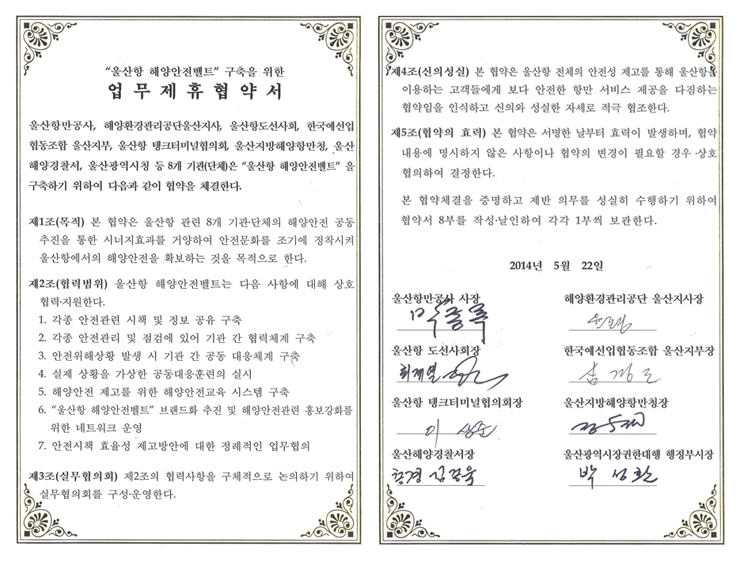 “울산항 해양안전벨트” 구축을 위한
업 무 제 휴 협 약 서
울산항만공사, 해양환경관리공단울산지사, 울산항도선사회, 한국예선업
협동조합 울산지부, 울산항 탱크터미널협의회, 울산지방해양항만청, 울산
해양경찰서, 울산광역시청 등 8개 기관(단체)은 “울산항 해양안전벨트” 을
구축하기 위하여 다음과 같이 협약을 체결한다.
제1조(목적) 본 협약은 울산항 관련 8개 기관·단체의 해양안전 공동
추진을 통한 시너지효과를 거양하여 안전문화를 조기에 정착시켜
울산항에서의 해양안전을 확보하는 것을 목적으로 한다.
제2조(협력범위) 울산항 해양안전벨트는 다음 사항에 대해 상호
협력·지원한다.
1. 각종 안전관련 시책 및 정보 공유 구축
2. 각종 안전관리 및 점검에 있어 기관 간 협력체계 구축
3. 안전위해상황 발생 시 기관 간 공동 대응체계 구축
4. 실제 상황을 가상한 공동대응훈련의 실시
5. 해양안전 제고를 위한 해양안전교육 시스템 구축
6. “울산항 해양안전벨트” 브랜드화 추진 및 해양안전관련 홍보강화를
위한 네트워크 운영
7. 안전시책 효율성 제고방안에 대한 정례적인 업무협의
제3조(실무협의회) 제2조의 협력사항을 구체적으로 논의하기 위하여
실무협의회를 구성·운영한다.
제4조(신의성실) 본 협약은 울산항 전체의 안전성 제고를 통해 울산항을
이용하는 고객들에게 보다 안전한 항만 서비스 제공을 다짐하는
협약임을 인식하고 신의와 성실한 자세로 적극 협조한다.
제5조(협약의 효력) 본 협약은 서명한 날부터 효력이 발생하며, 협약
내용에 명시하지 않은 사항이나 협약의 변경이 필요할 경우 상호
협의하여 결정한다.
본 협약체결을 증명하고 제반 의무를 성실히 수행하기 위하여
협약서 8부를 작성·날인하여 각각 1부씩 보관한다.
2014년 5월 22일
울산항만공사 사장
해양환경관리공단 울산지사장
박종록
울산항 도선사회장
한국예선업협동조합 울산지부장
울산항 탱크터미널협의회장
울산지방해양항만청장
이
울산해양경찰서장
울산광역시장권한대행 행정부시장
총경 김경욱
박 성환